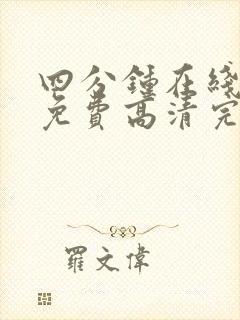 四分鍾在綫
免費高清完
羅文偉